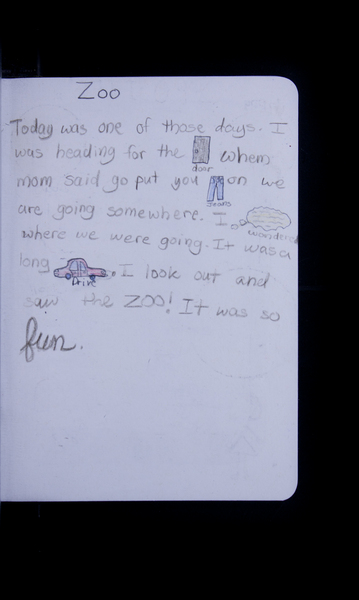 Zoo
Today was one of those days. I
was heading for the door whem
mom said go put you jeans on we
are going somewhere. I wondered
where we were going. It was a
long Drive. I look out and
saw the ZOO! It was so
fun.